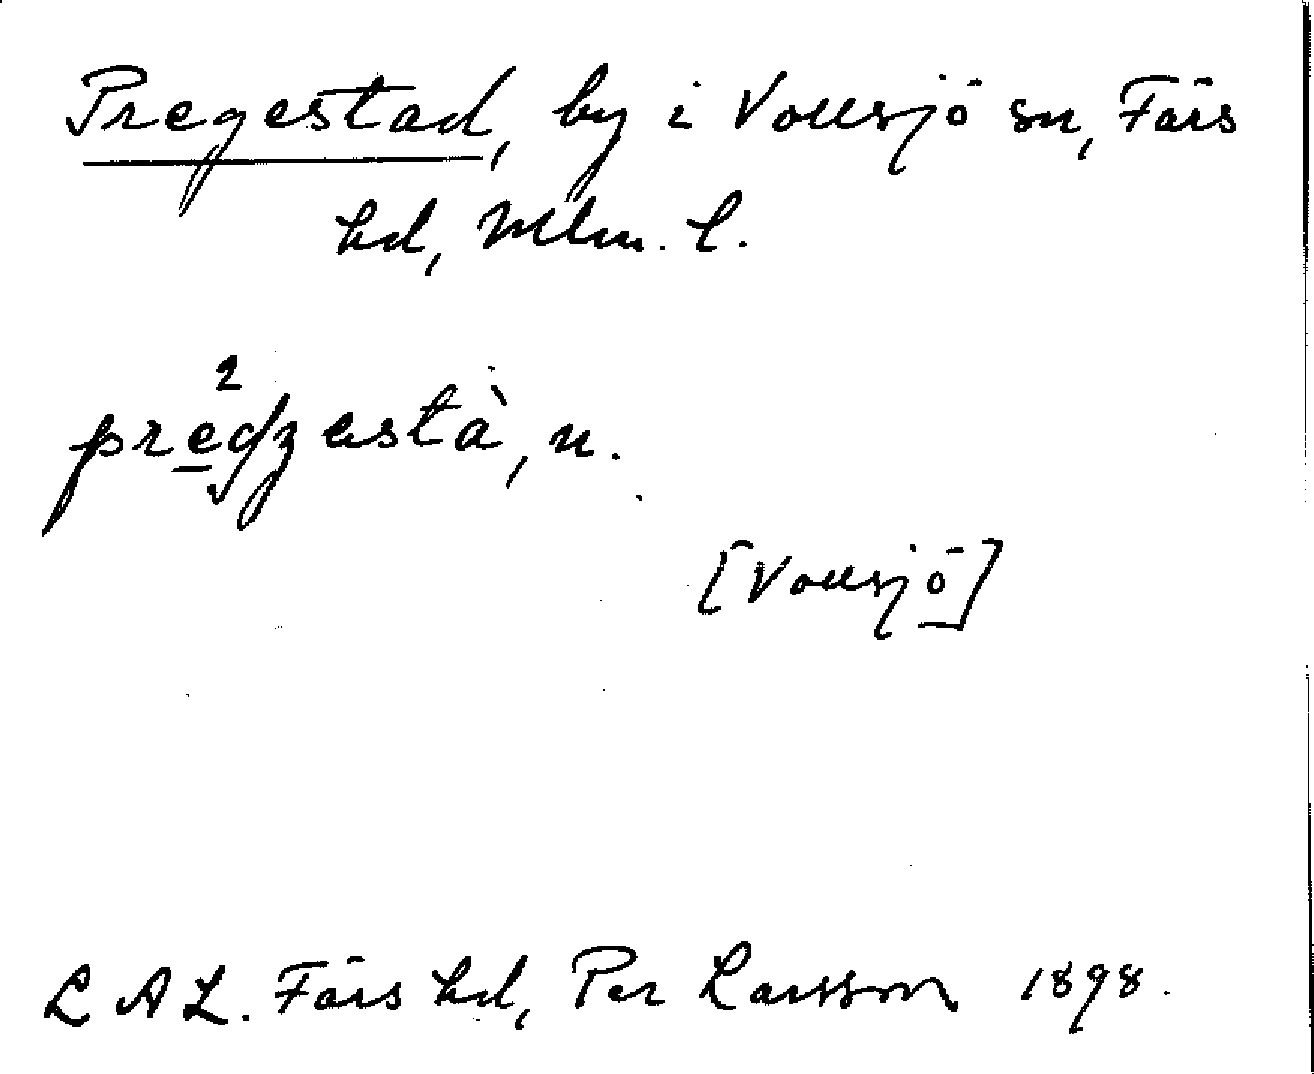 Pregestad, by i Vollsjö sn, Färs
hd, Mlm. l.
pre²dʒestà, n.
[Vollsjö]
LAL. Färs hd, Per Larsson 1898.